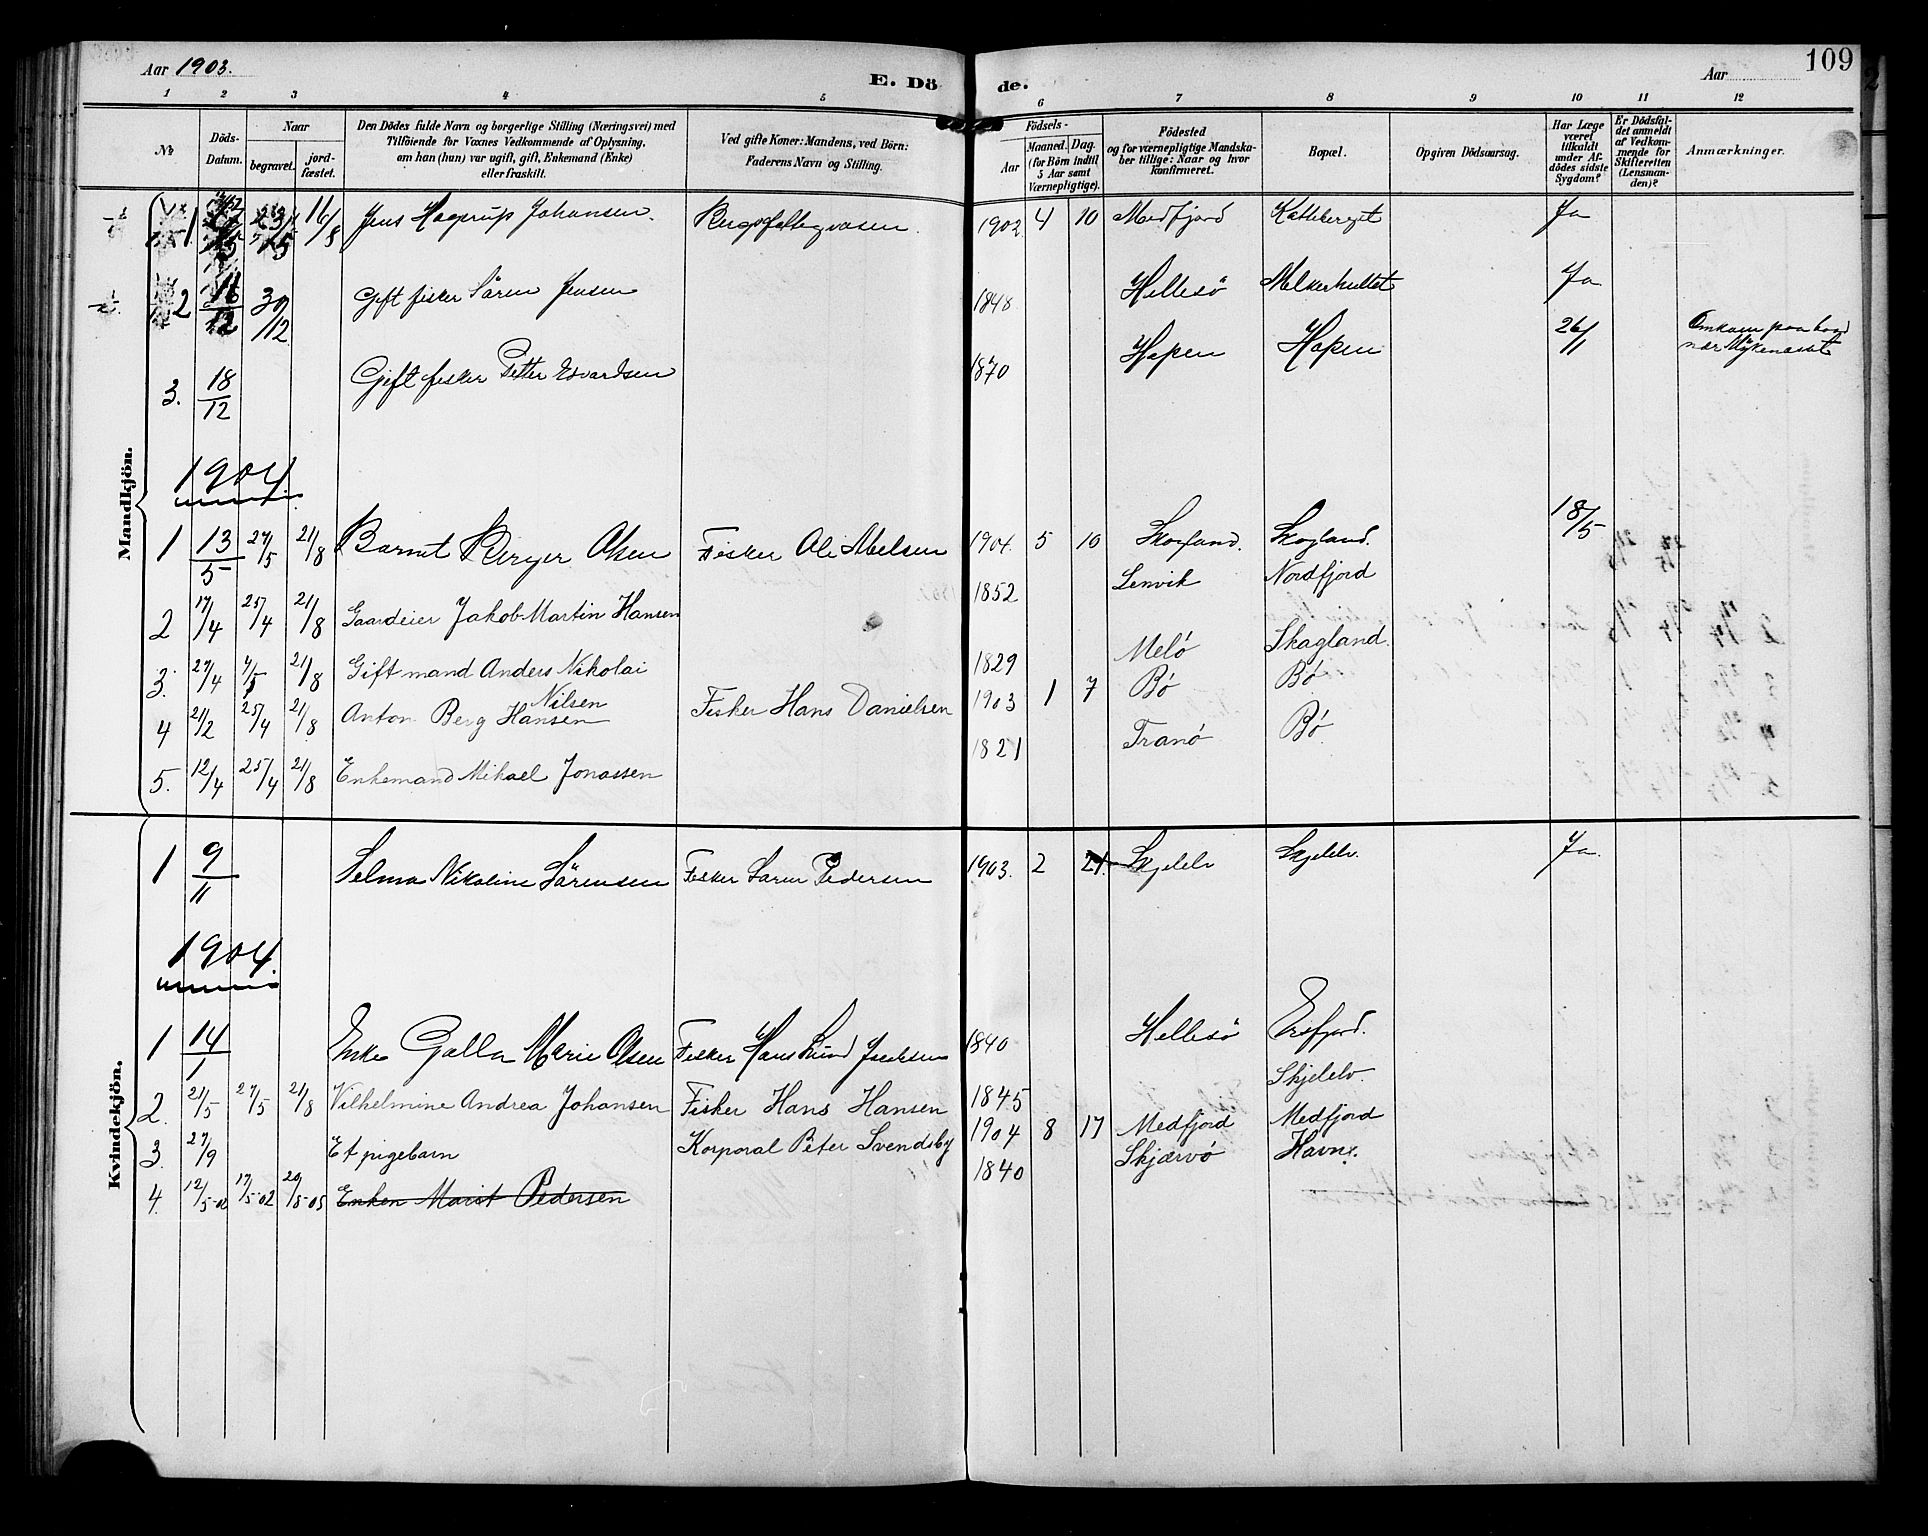 Aar 1903.
E. Dö
de.
Aar
109
1 2 3 4 5 6 7 8 9 10 11 12
№
Döds-
Datum.
Naar
begravet.
jord-
fæstet.
Den Dödes fulde Navn og borgerlige Stilling (Næringsvei) med
Tilföiende for Voxnes Vedkommende af Oplysning,
om han (hun) var ugift, gift, Enkemand (Enke)
eller fraskilt.
Ved gifte Koner: Mandens, ved Börn:
Faderens Navn og Stilling.
Födsels-
Aar
Maaned.
Dag.
(for Börn indtil
5 Aar samt
Værnepligtige).
Födested
og for værnepligtige Mandska-
ber tillige: Naar og hvor
konfirmeret.
Bopæl.
Opgiven Dödsaarsag.
Har Læge
været
tilkaldt
under Af-
dödes sidste
Sygdom?
Er Dödsfal-
det anmeldt
af Vedkom-
mende for
Skifteretten
(Lensman-
den)?
Anmærkninger.
Mandkjön.
1 16/8 Jens Hagrup Johansen. 1902 4 10 Medfjord Ja
2 30/12 Gift fisker Sören Jensen 1848 Hellesö Ja
3. 18/12 Gift fisker Petter Edvardsen 1870 Hopen Hopen 26/1 Omkom paa hav
nær
1904
1 13/5 27/5 21/8 Barnet Birger Olsen Fisker Ole Abelsen 1904. 5 10 Skogland. Skogland. 18/5
2 17/4 25/4 21/8 Gaardeier Jakob Martin Hansen 1852 Lenvik Nordfjord
3. 27/4 7/5 21/8 Gift mand Anders Nikolai
Nilsen 1829 Melø Skagland.
4 21/2 25/4 21/8 Anton Berg Hansen Fisker Hans Danielsen 1903 1 7 Bø Bø
5. 12/4 25/4 21/8 Enkemand Mikael Jonassen 1821 Tranø Bø
Kvindekjön.
1 9/11 Selma Nikoline Sörensen Fisker Sören Pedersen 1903. 2 21. Skjelelv Skjelelv. Ja.
1904.
1 14/1 Enke Marie Olsen Fisker Hans Lund 1840 Hellesö Ersfjord.
2. 21/5 27/5 21/8 Vilhelmine Andrea Johansen Fisker Hans Hansen 1845 Skjelelv.
3. 27/9 Et pigebarn Korporal Peter Svendsby 1904 8 17 Medfjord Medfjord
4. 12/5-02 17/5-02 20/8-05 Enken Marit Pedersen 1840 Skjærvø Havn.